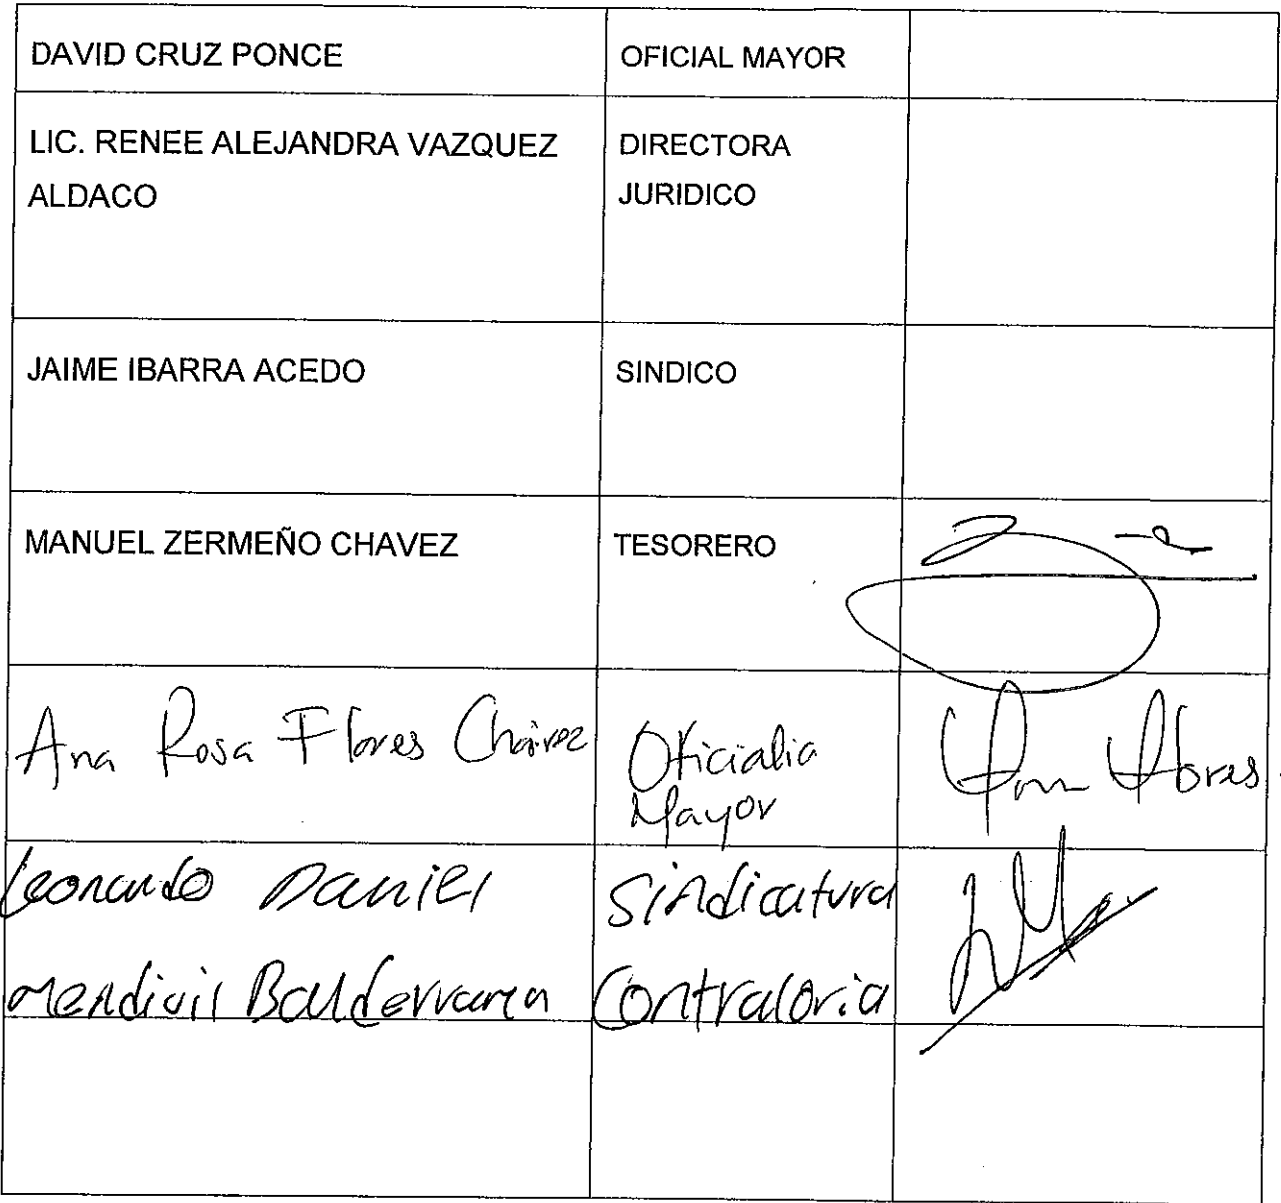 DAVID CRUZ PONCE
OFICIAL MAYOR
LIC. RENEE ALEJANDRA VAZQUEZ
ALDACO
DIRECTORA
JURIDICO
JAIME IBARRA ACEDO
SINDICO
MANUEL ZERMEÑO CHAVEZ
TESORERO
Ana Rosa Flores Chávez
Oficialia
Mayor
Ana Flores.
Leonardo Daniel
Mendivil Balderrama
Sindicatura
Contraloria